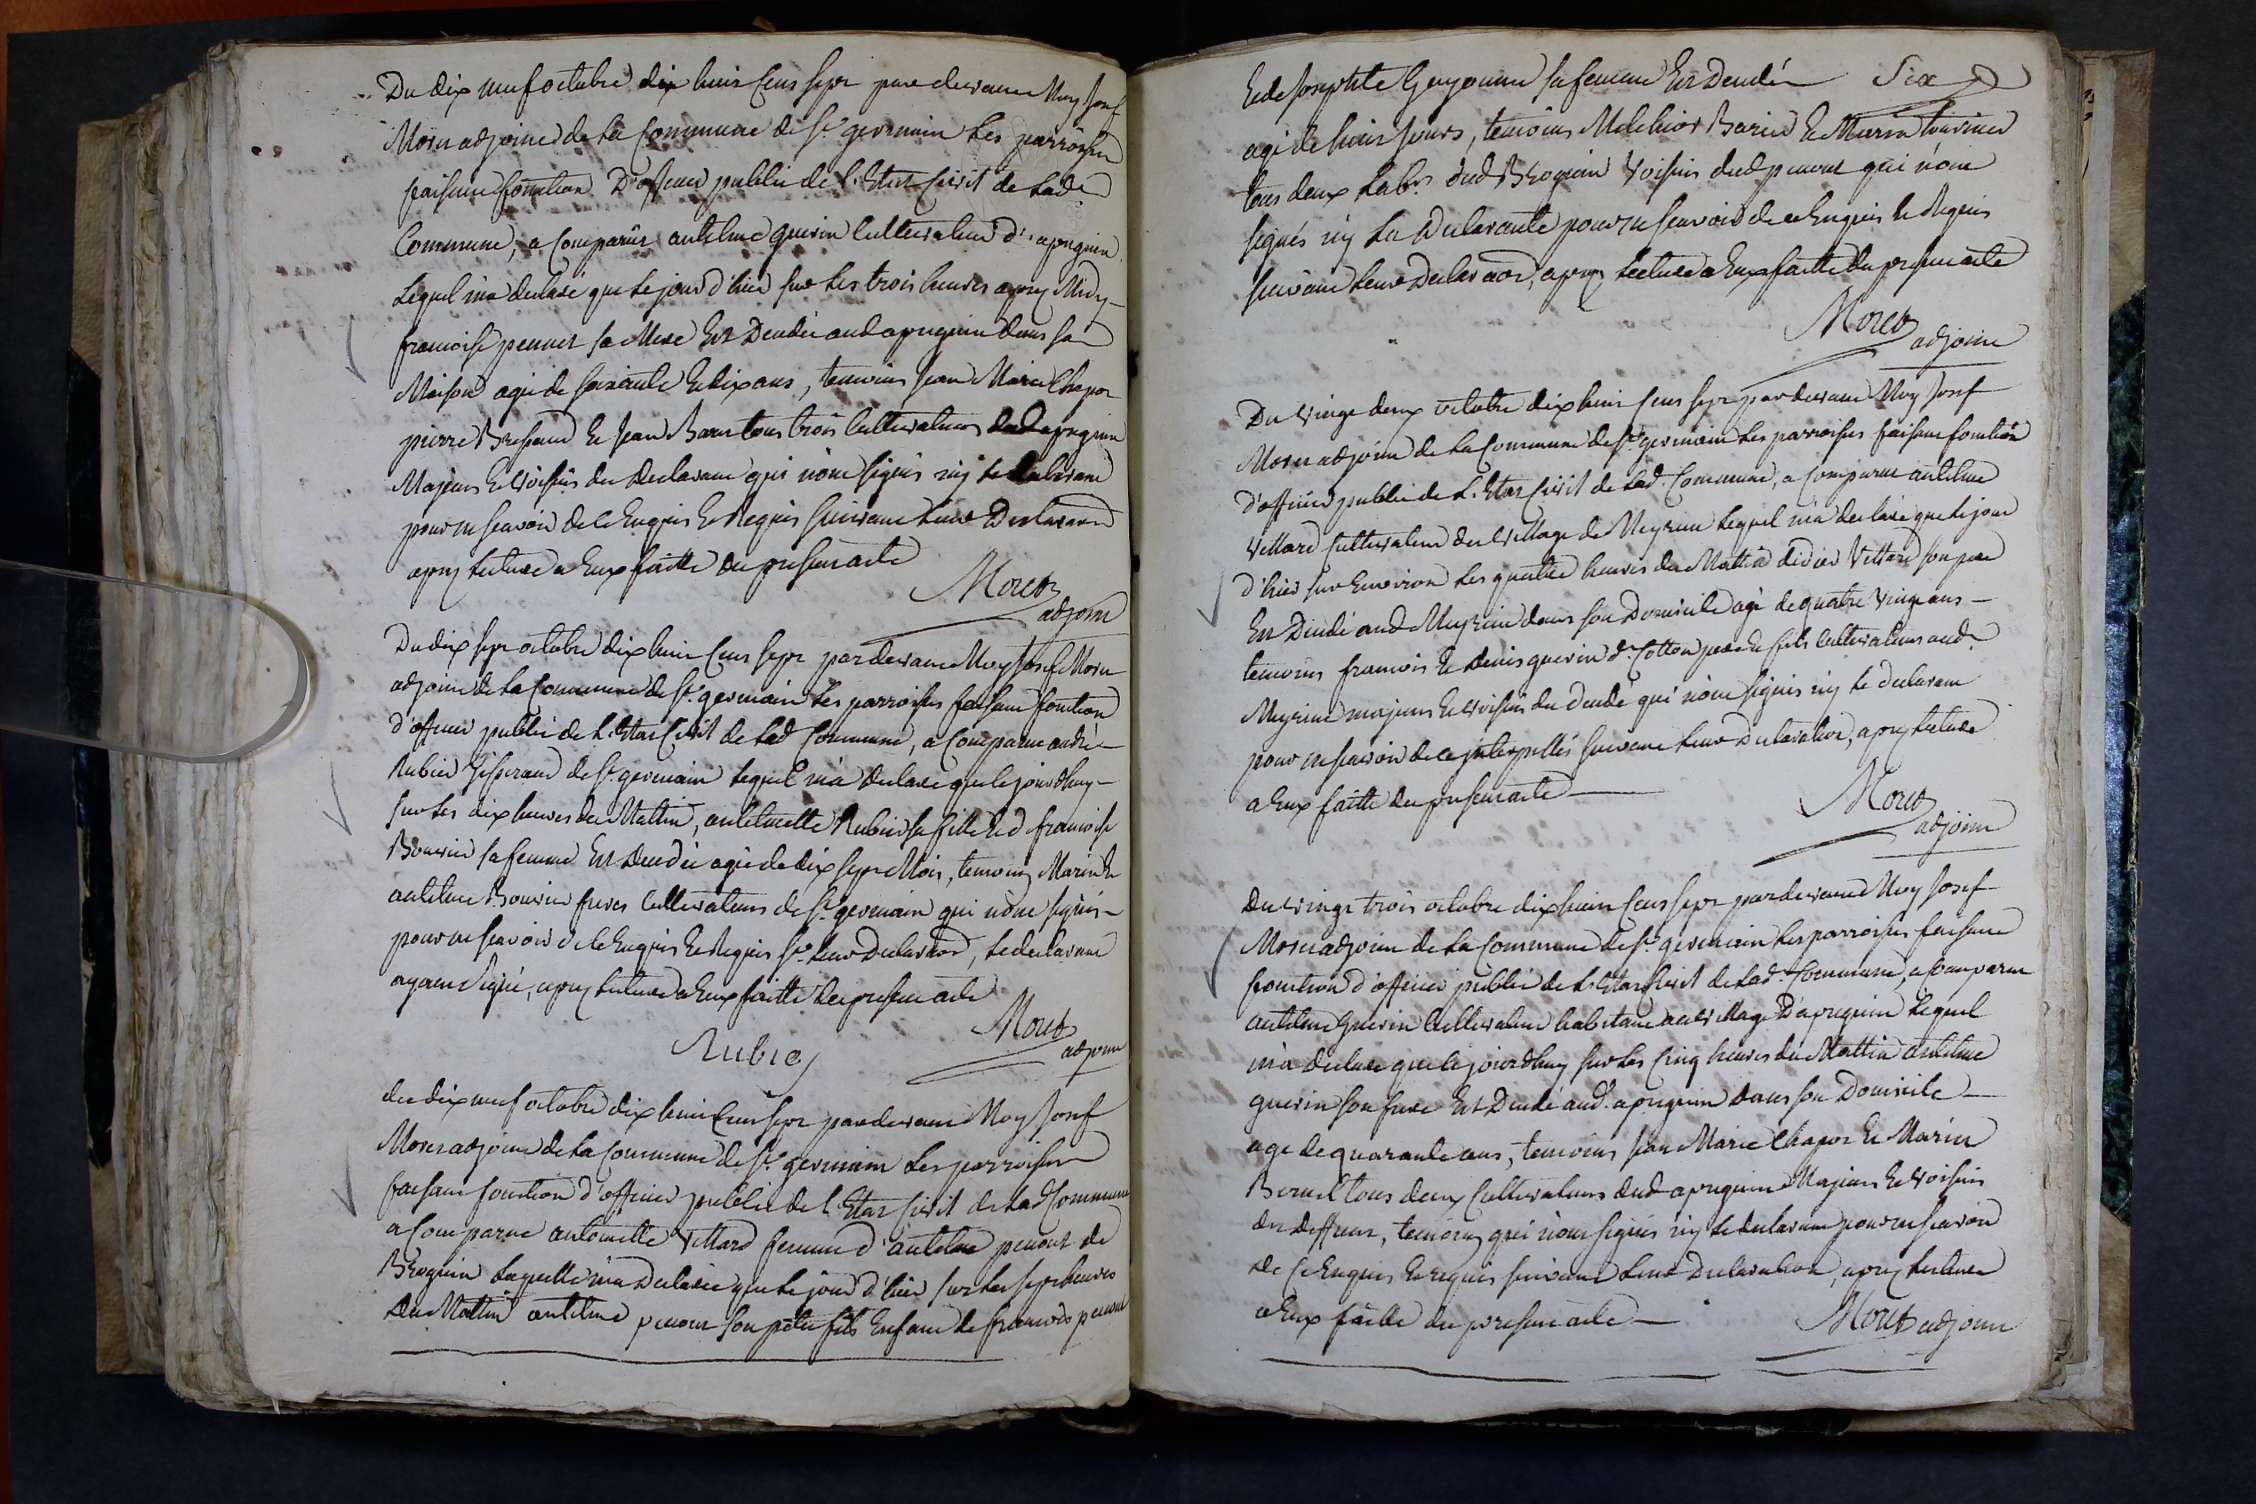 Du dix neuf octobre dix huit Cens sept par devant Moy Josef
Moret adjoint de La Commune de St germain Les parroisses
faisant fonction D'officier public de L'Etat Civil de Lad.
Commune, a Comparût anthelme guerin Cultivateur d'apregnin
Lequel m'a declaré que Le jour d'hier sur Les trois heures apres Midy
francoise pennet sa Mere Est Decedée aud apregnin dans sa
Maison agée de soixante Et dix ans, temoins Jean Marie Chapot
pierre Bressand Et Jean Baret tous trois Cultivateurs dud apregnin
Majeurs Et voisins du declarant qui n'ont signés ny Le declarant
pour ne scavoir de Ce Enquis Et Requis suivant Leur Declaraon
apres Lecture a Eux faitte du present acte
Moret
adjoint
Du dix sept octobre dix huit Cens sept par devant Moy Josef Moret
adjoint de La Commune de St germain Les parroisses faisant fonction
d'officier public de L'Etat Civil de Lad Commune, a Comparut andré
Rubier tisserand de St germain Lequel m'a declaré que Le jourdhuy
sur Les dix heures du Mattin, anthelmette Rubier sa fille Et d francoise
Bouvier sa femme Est Decedée agée de dix sept Mois, temoins Marin Et
anthelme Bouvier freres Cultivateurs de St germain qui n'ont signés
pour ne scavoir de Ce Enquis Et Requis St Leur Declaraon, Le declarant
ayant signé, apres Lecture a Eux faitte du present acte
Rubier
Moret
adjoint
du dix neuf octobre dix huit Cens sept par devant Moy Josef
Moret adjoint de La Commune de St germain Les parroisses
faisant fonction d'officier public de L'Etat Civil de Lad Commune
a Comparue antoinette Villard femme d'anthelme penout de
Brognin Laquelle m'a Declarée que Le jour d'hier sur Les sept heures
Du Mattin anthelme penout son petit fils Enfant de francois penout
Et de Josephte Guyonne sa femme Est Decedé
agé de huit Jours, temoins Melchior Et Marin
tous deux Labrs dud Brognin Voisins dud penout qui n'ont
signés ny La declarante pour ne scavoir de ce Enquis Et Requis
suivant Leur Declaraon, apres Lecture a Eux faitte du present acte
Moret
adjoint
Du vingt deux octobre dix huit Cens sept par devant Moy Josef
Moret adjoint de La Commune de St germain Les parroisses faisant fonction
d'officier public de L'Etat Civil de Lad. Commune, a Comparut anthelme
Villard Cultivateur du village de Meyrieu Lequel m'a declaré que Le jour
d'hier sur Environ Les quatre heures du Mattin didier Villard son pere
Est Decedé aud Meyrieu dans son Domicile agé de quatre Vingt ans
temoins francois Et denis guerin d. Cotton pere Et fils Cultivateurs aud.
Meyrieu majeurs Et voisins du decedé qui n'ont signés ny Le declarant
pour ne scavoir de ce interpellés suivant Leur Declaration, apres Lecture
a Eux faitte du present acte
Moret
adjoint
Du vingt trois octobre dix huit Cens sept par devant Moy Josef
Moret adjoint de La Commune de St germain Les parroisses faisant
fonction d'officier public de L'Etat Civil de Lad. Commune, a Comparut
anthelme Guerin Cultivateur habitant au village D'apregnin Lequel
m'a declaré que Le jourdhuy sur Les Cinq heures du Mattin anthelme
guerin son frere Est Decedé aud. apregnin dans son Domicile
agé de quarante ans, temoins Jean Marie Chapot Et Marin
tous deux Cultivateurs dud apregnin Majeurs Et voisins
du deffunt, temoins qui n'ont signés ny Le declarant pour ne scavoir
de Ce Enquis Et requis suivant Leur Declaration, apres Lecture
a Eux faitte du present acte
Moret adjoint